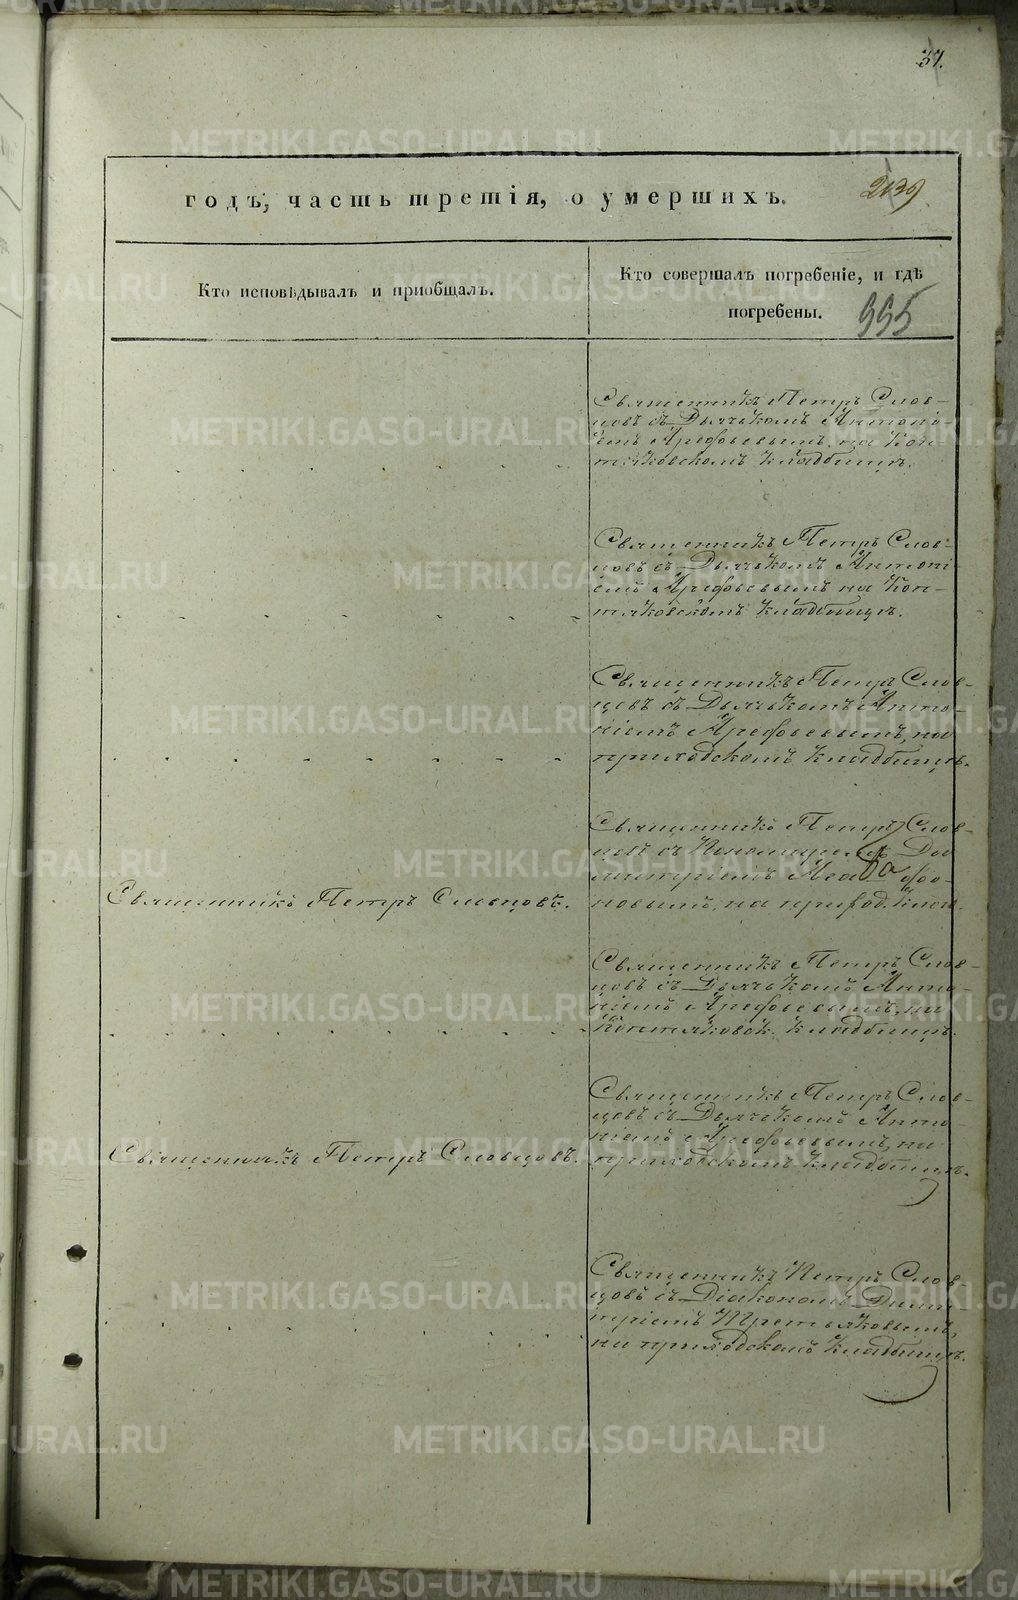 37.
годъ, часть третія, о умершихъ.
2139
Кто исповѣдывалъ и приобщалъ.
Кто совершалъ погребеніе, и гдѣ
погребены.
995
Священникъ Петръ Слов-
цовъ съ Дьячькомъ Антоні-
емъ Арефьевымъ на Коп-
тяковскомъ кладбищѣ.
Священникъ Петръ Слов-
цовъ съ Дьячькомъ Антоні-
емъ Арефьевымъ на Коп-
тяковскомъ кладбищѣ.
Священникъ Петръ Слов-
цовъ съ Дьячькомъ Анто-
ніемъ Арефьевымъ, на
приходскомъ кладбищѣ.
Священникъ Петръ Словцовъ.
Священникъ Петръ Слов-
цовъ съ
новымъ, на приход. клад.
Священникъ Петръ Слов-
цовъ съ Дьячькомъ Анто-
ніемъ Арефьевымъ, на
Коптяковск. кладбищѣ.
Священникъ Петръ Словцовъ.
Священникъ Петръ Слов-
цовъ съ Дьячькомъ Анто-
ніемъ Арефьевымъ, на
приходскомъ кладбищѣ.
Священникъ Петръ Слов-
цовъ съ Діакономъ Дими-
тріемъ Третьяковымъ,
на приходскомъ кладбищѣ.
METRIKI.GASO-URAL.RU